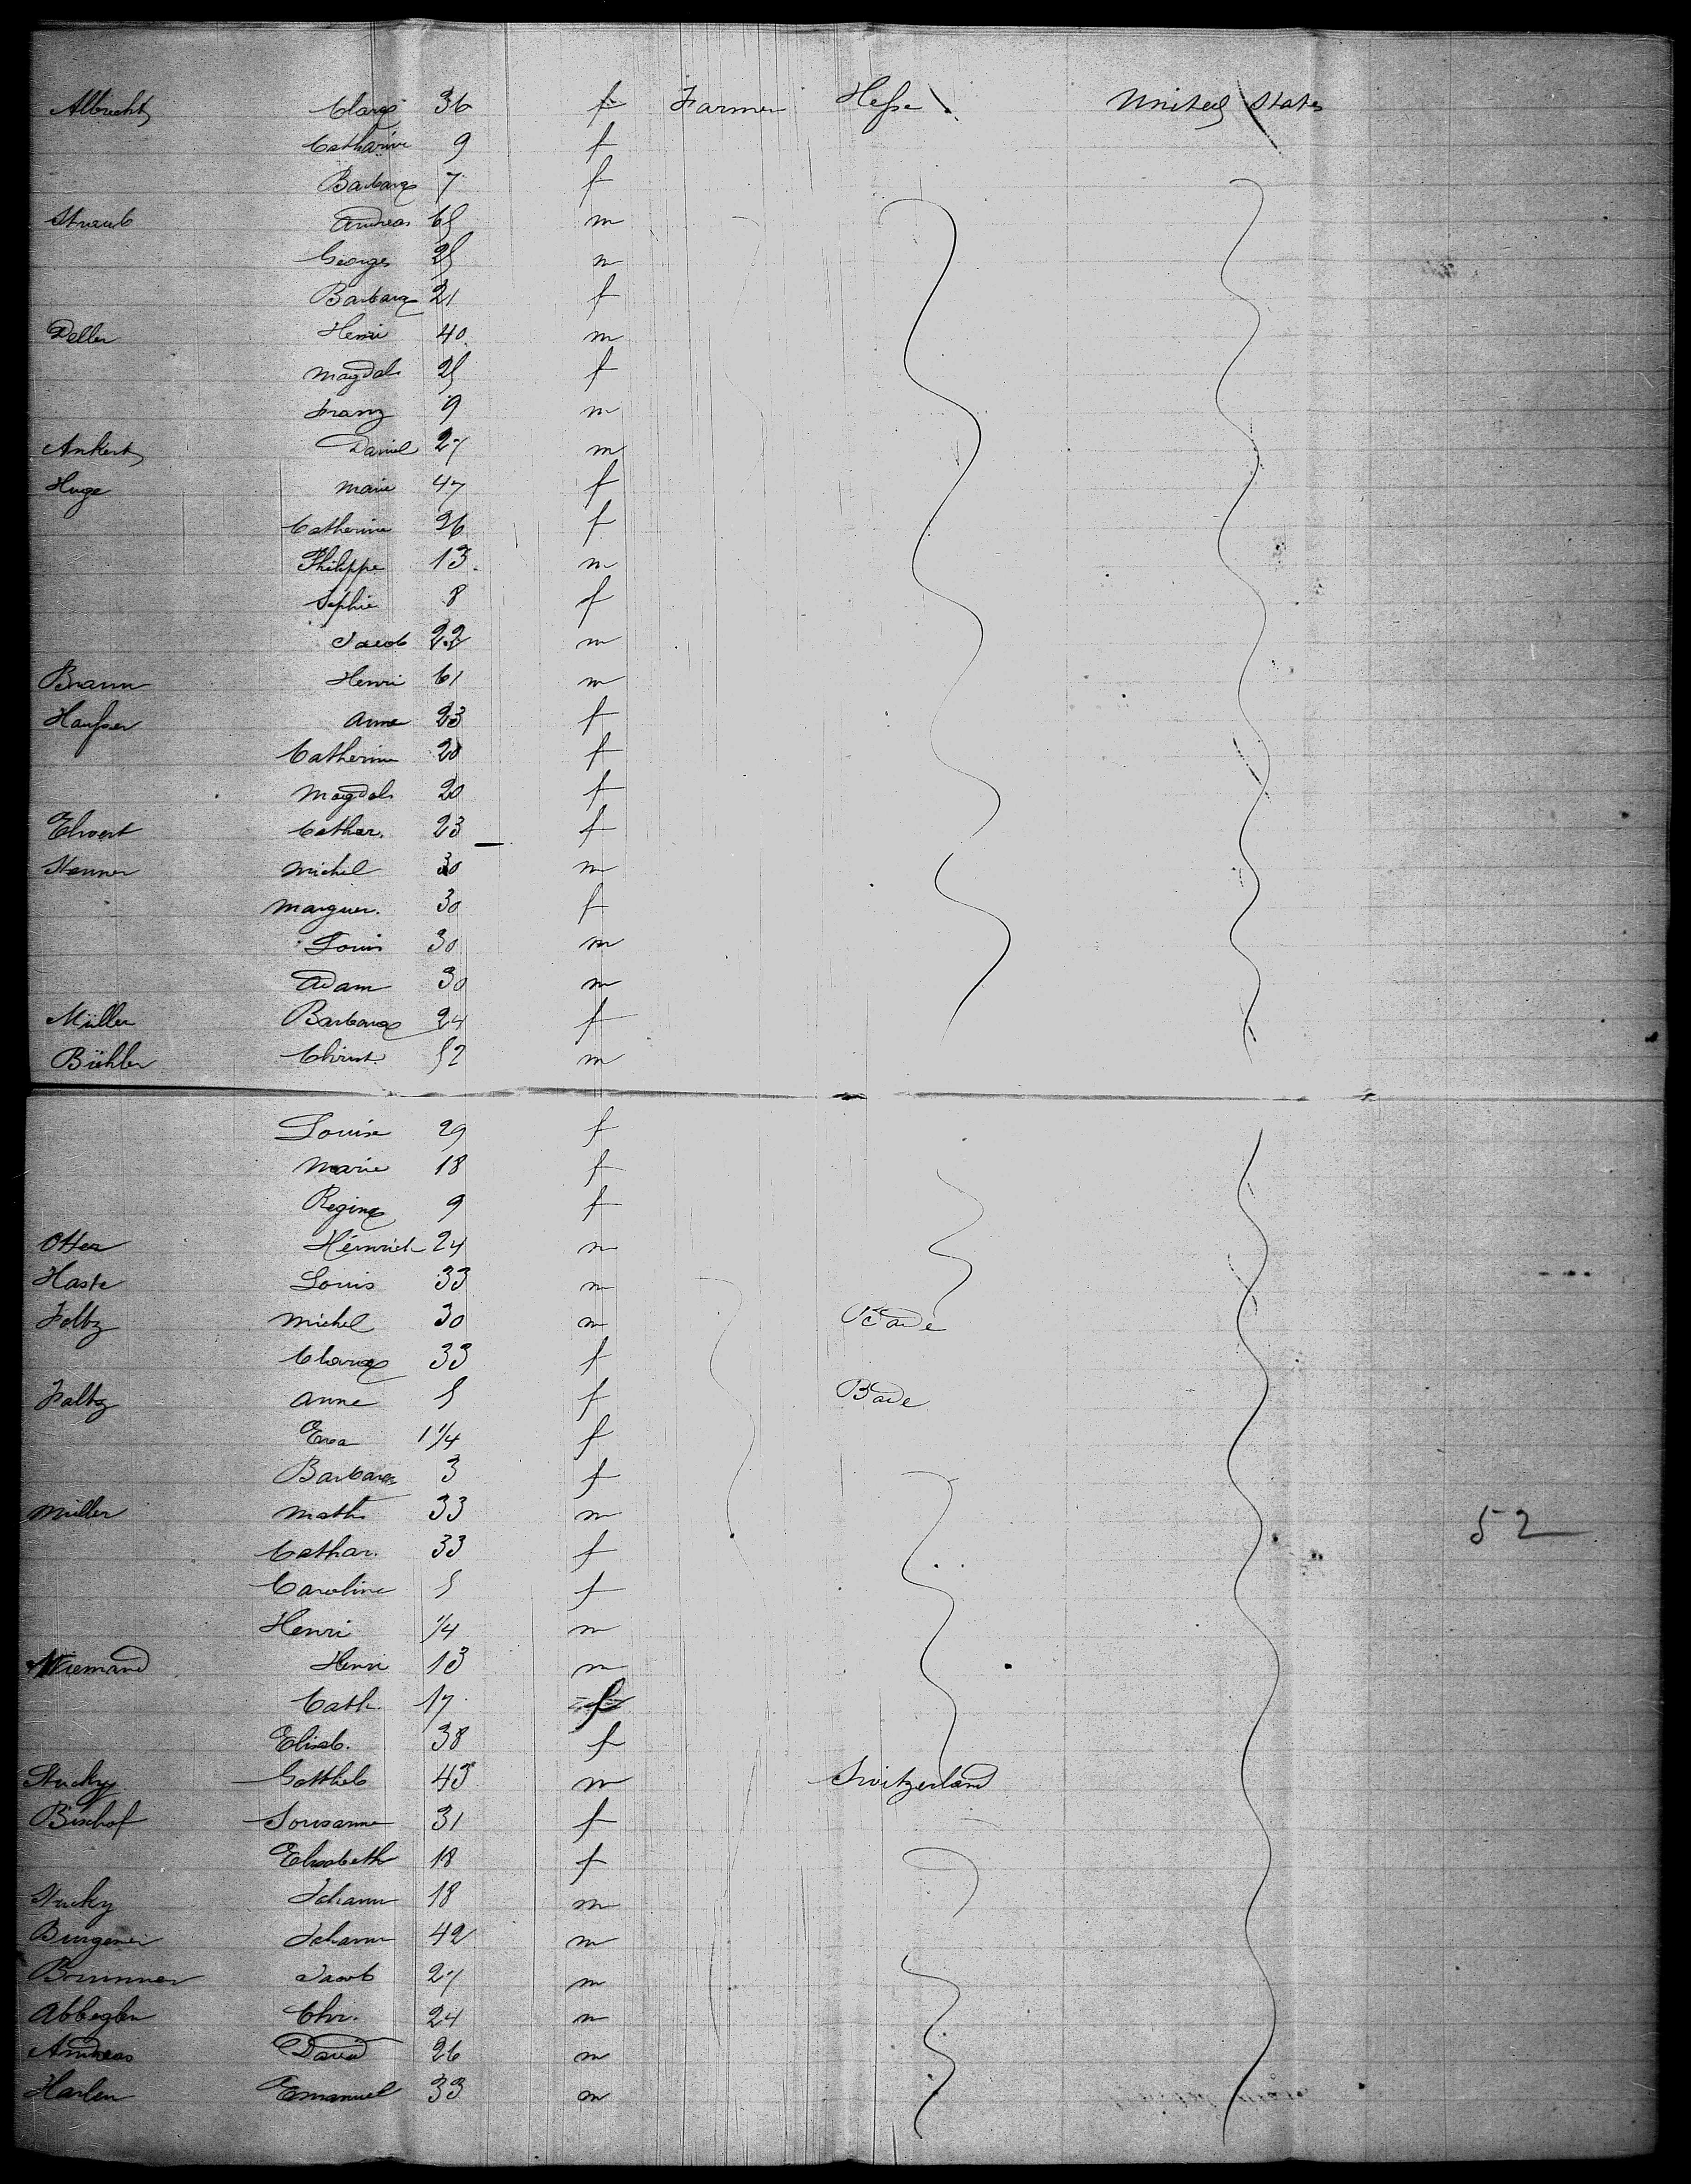 Albrecht Clara 36 f Farmer Hesse United States
Catharine 9 f
Barbara 7 f
Straub Andreas 65 m
Georges 25 m
Barbara 21 f
Deller Henri 40 m
Magdal. 25 f
Franz 9 m
Ankert Daniel 27 m
Huge Marie 47 f
Catherine 26 f
Philippe 13 m
Sophie 8 f
Jacob 22 m
Braun Henri 61 m
Hausser Anna 23 f
Catherine 20 f
Magdal. 20 f
Elwert Cathar. 23 f
Stenner Michel 30 m
Marguer. 30 f
Louis 30 m
Adam 30 m
Müller Barbara 24 f
Bühler Christ. 52 m
Louise 29 f
Marie 18 f
Regina 9 f
Otter Heinrich 24 m
Haste Louis 33 m
Foltz Michel 30 m Bade
Clara 33 f
Foltz Anne 5 f Bade
Eva 1 1/4 f
Barbara 3 f
Müller Math. 33 m 52
Cathar. 33 f
Caroline 5 f
Henri 1/4 m
Niemand Henri 13 m
Cath. 17 f
Elisab. 38 f
Stucky Gottlieb 43 m Switzerland
Bischof Sousanne 31 f
Elisabeth 18 f
Stucky Johann 18 m
Burgener Johann 42 m
Brunner Jacob 27 m
Abbeglen Chr. 24 m
Andreas David 26 m
Harlen Emanuel 33 m